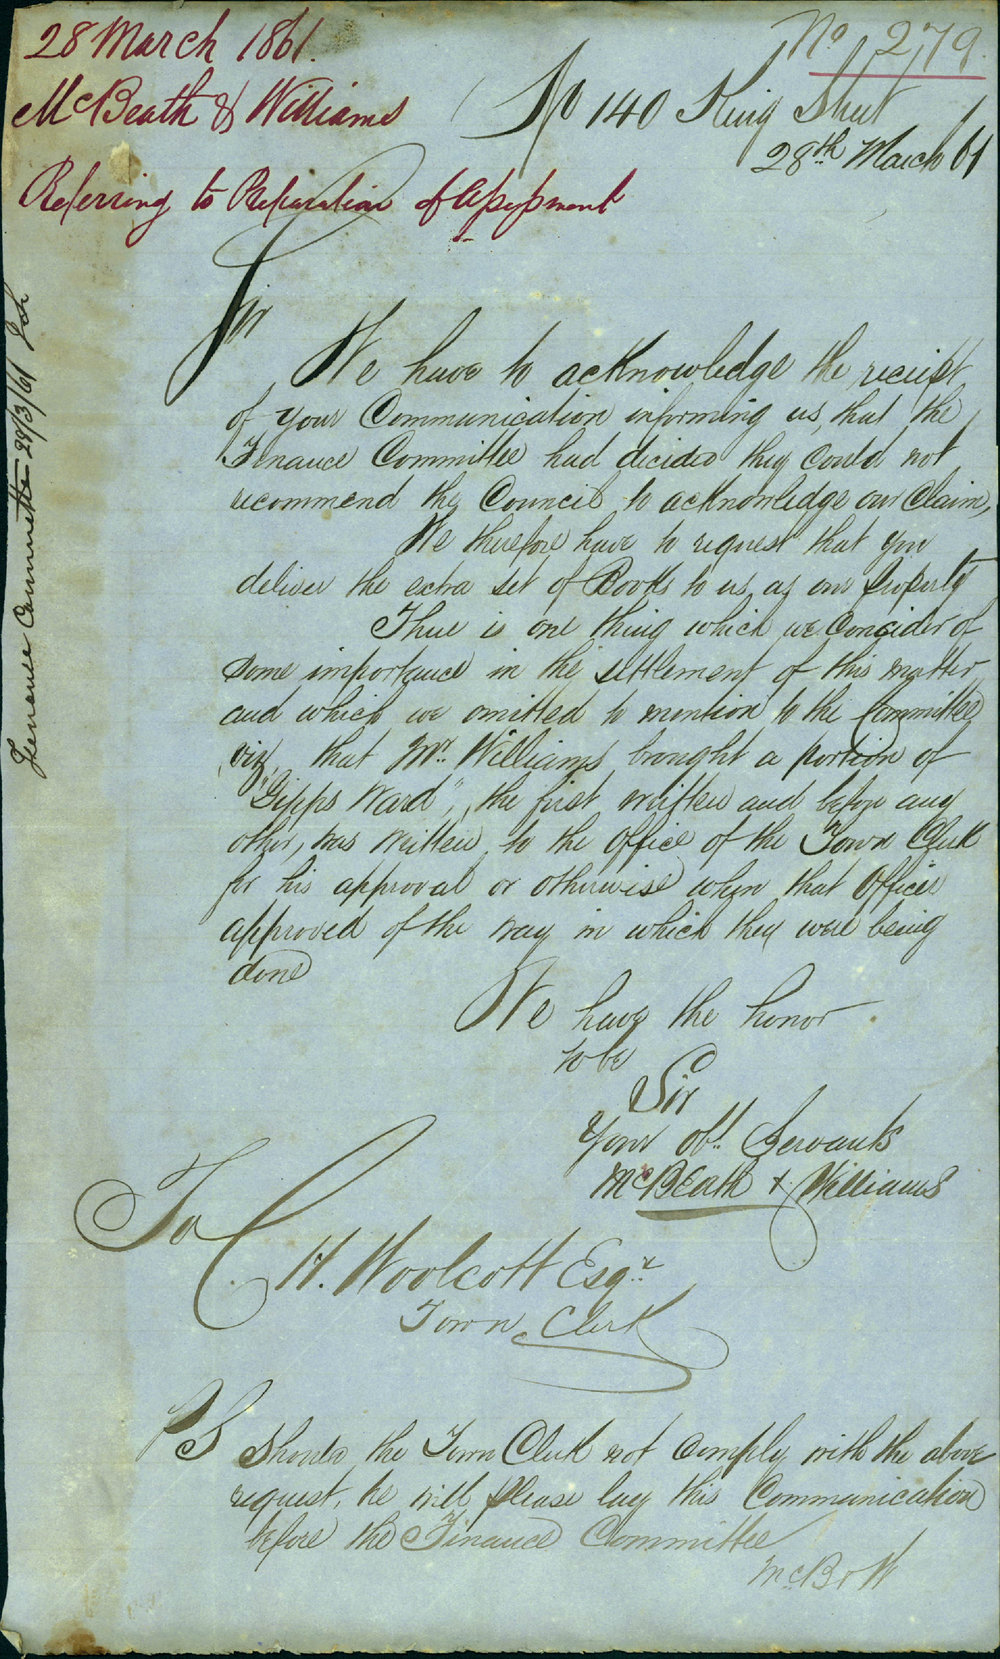 28 March 1861.
McBeath & Williams
Referring to Preparation of Assessment
No 279.
No 140 King Street
28th March 61
Finance Committee 28/3/61
Sir
We have to acknowledge the receipt
of your Communication informing us that the
Finance Committee had decided they could not
recommend the Council to acknowledge our Claim,
We therefore have to request that you
deliver the extra set of Books to us as our property
There is one thing which we Concider of
some importance in the settlement of this matter
and which we omitted to mention to the Committee
viz that Mr. Williams brought a portion of
"Gipps Ward", the first written and before any
other, was written, to the Office of the Town Clerk
for his approval or otherwise when that Officer
approved of the way in which they were being
done
We have the honor
to be
Sir
Your obt. Servants
McBeath & Williams
To
C. H. Woolcott Esqr.
Town Clerk
PS Should the Town Clerk not comply with the above
request, he will please lay this Communication
before the Finance Committee
McB & W